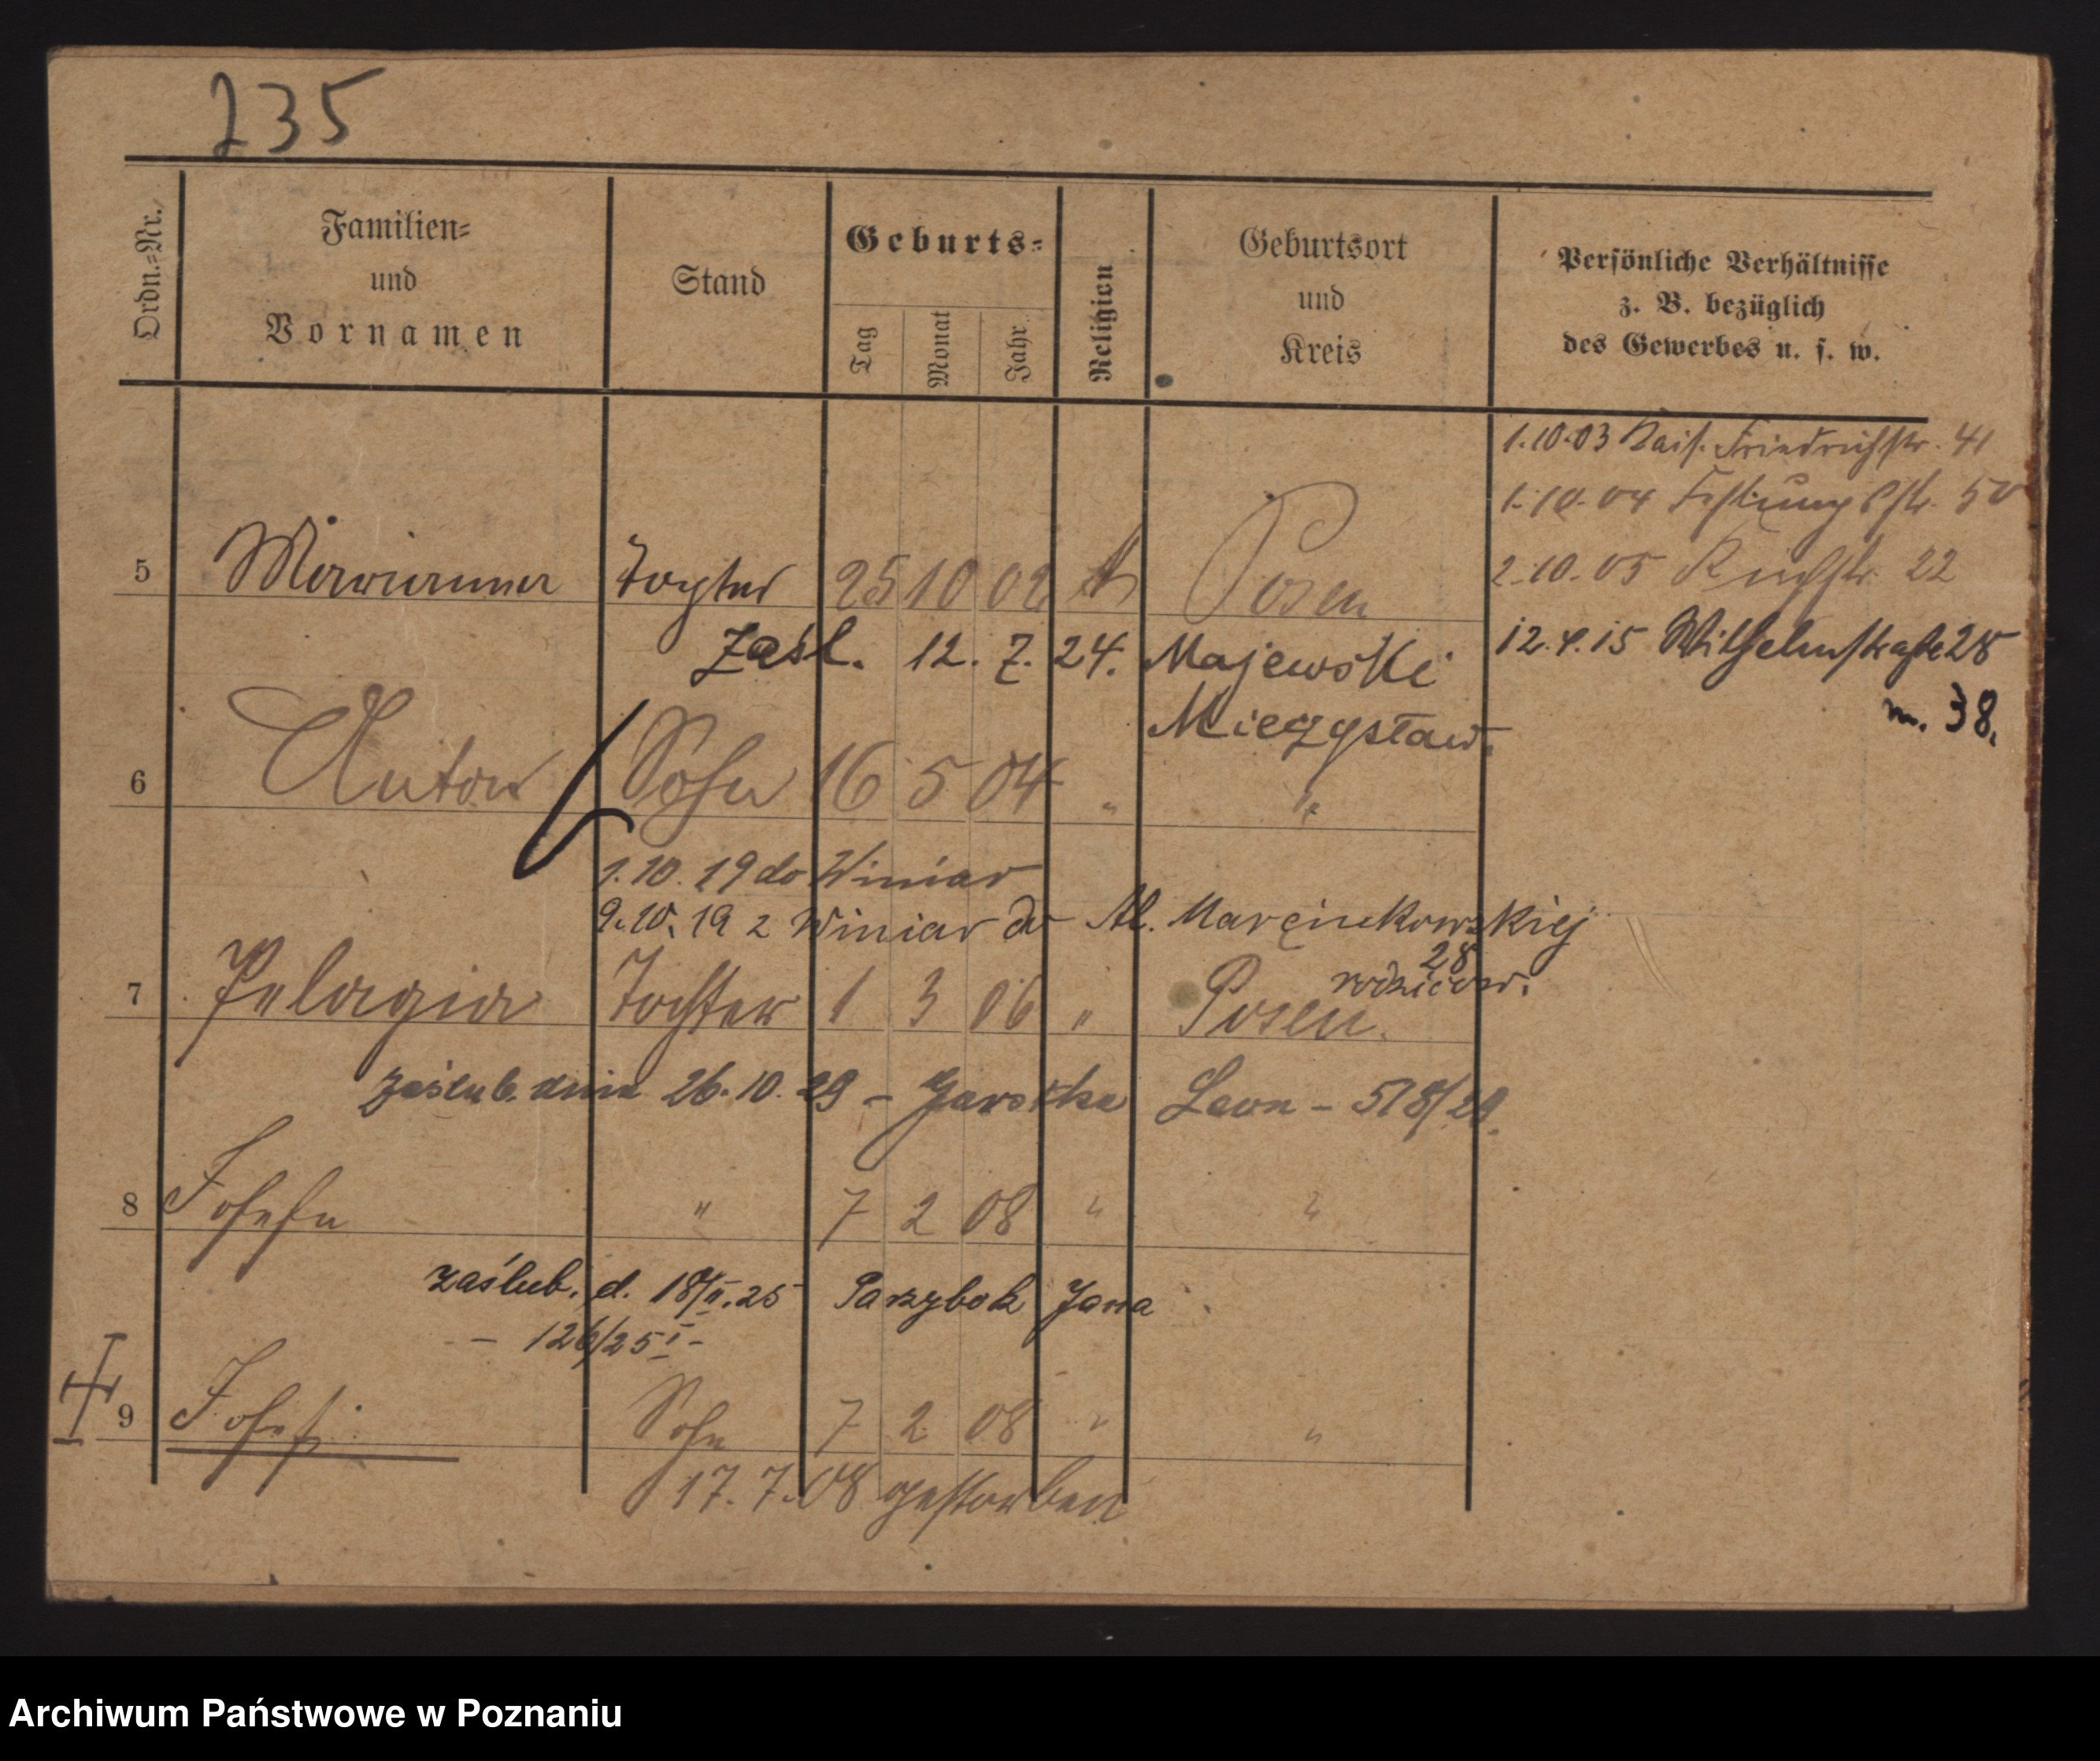 235
Ordn.=Nr.
Familien=
und
Vornamen
Stand
Geburts=
Tag
Monat
Jahr
Religion
Geburtsort
und
Kreis
Persönliche Verhältnisse
z. B. bezüglich
des Gewerbes u. s. w.
1.10.03 Kais. Friedrichstr. 41
1.10.04 Festungsstr. 50
2.10.05 22
12.4.15 Wilhelmstraße 28
m. 38.
5 Marianna Tochter 25 10 02 Posen
Zaśl. 12. 7. 24. Majewski
Mieczysław.
6 Anton Sohn 16 5 04 " "
1.10.19 do Winiar
9.10.19 z Winiar do Al. Marcinkowskiej
28
rodziców.
7 Pelagia Tochter 1 3 06 " Posen.
zaślub. dnia 26.10.29 – Garstka Leon – 518/29.
8 Josefa " 7 2 08 " "
zaślub. d. 18/II.25 Parzybok Jana
– 126/25 I –
9 Josef Sohn 7 2 08 " "
17.7.08 gestorben
Archiwum Państwowe w Poznaniu